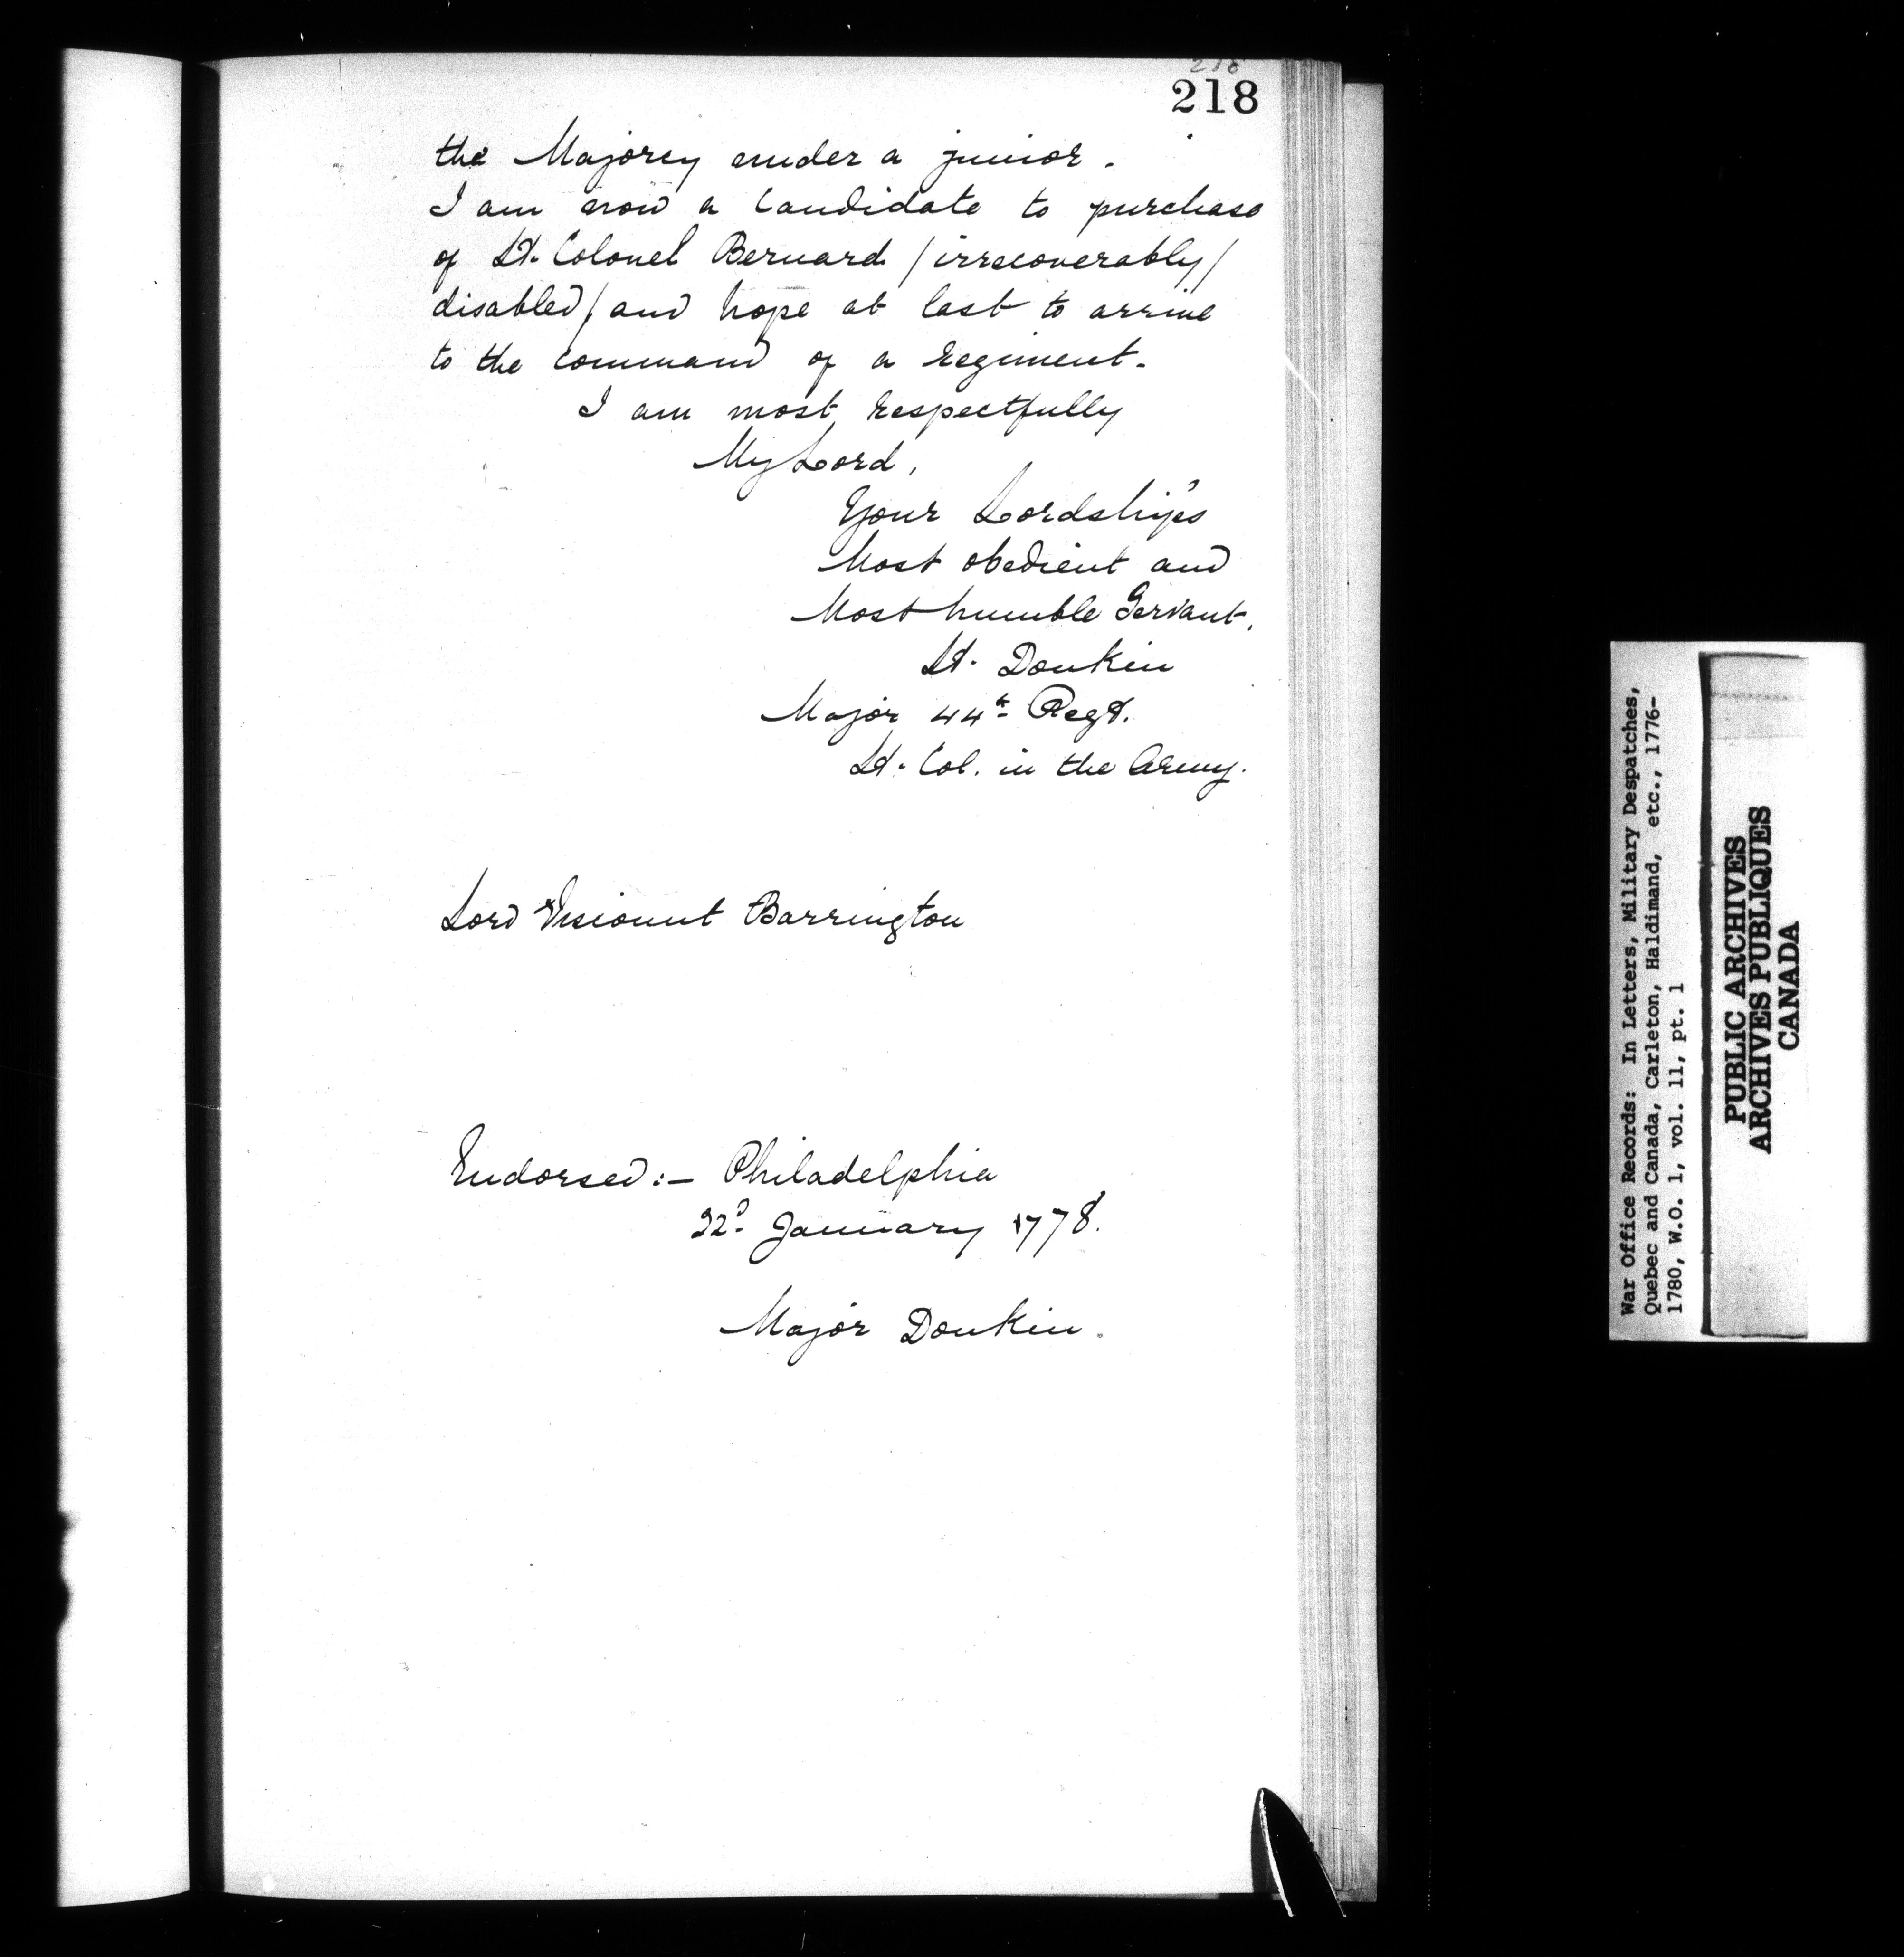 218
218
the Majorcy under a junior.
I am now a Candidate to purchase
of Lt. Colonel Bernard /irrecoverably/
disabled/ and hope at last to arrive
to the command of a Regiment.
I am most respectfully
My Lord,
Your Lordship's
Most obedient and
Most humble Servant,
Lt. Donkin
Major 44th Regt.
Lt. Col. in the Army.
Lord Viscount Barrington
Endorsed:- Philadelphia
22d January 1778.
Major Donkin.
War Office Records: In Letters, Military Despatches,
Quebec and Canada, Carleton, Haldimand, etc., 1776-
1780, W.O. 1, vol. 11, pt. 1
PUBLIC ARCHIVES
ARCHIVES PUBLIQUES
CANADA